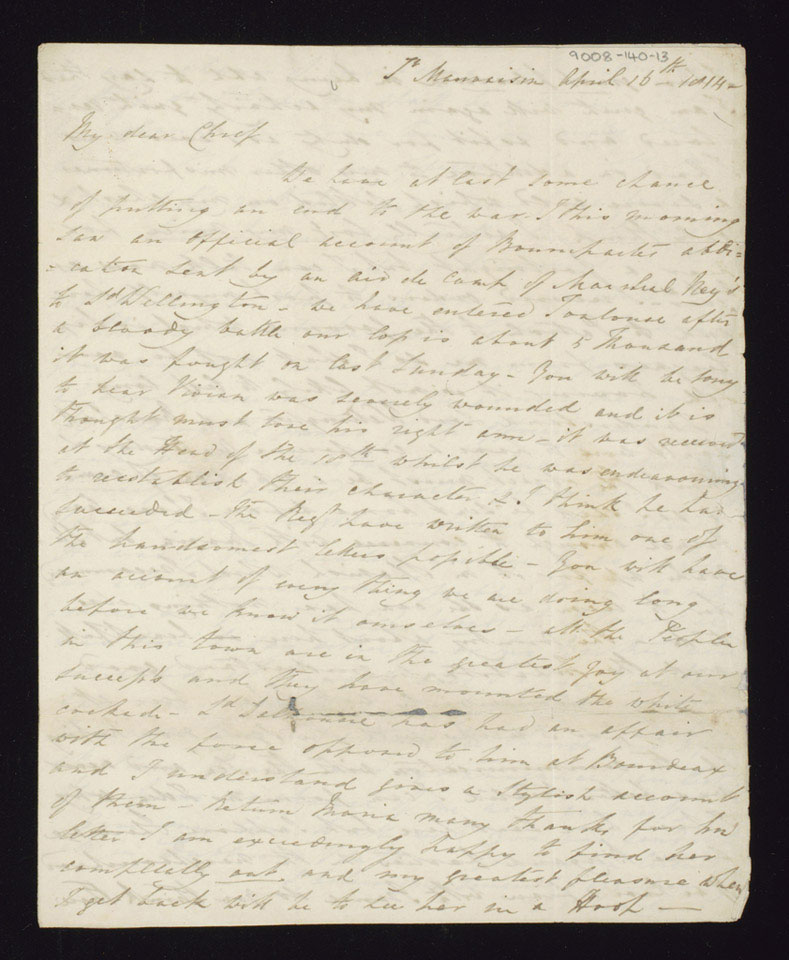 9008-140-13
April 16th 1814
My dear Chief
We have at last some chance
of putting an end to the war I this morning
saw an official account of Bounaparte's abdi=
=cation sent by an aid de camp of Marshal Ney's
to Ld Wellington - we have entered Toulouse after
a bloody battle our loss is about 5 Thousand
it was fought on last Sunday - You will be sorry
to hear Vivian was severely wounded and it is
thought must lose his right arm - it was received
at the Head of the 18th whilst he was endeavouring
to reestablish their character & I think he had
succeeded - The Regt have written to him one of
the handsomest letters possible - You will have
an account of every thing we are doing long
before we know it ourselves - all the People
in this town are in the greatest joy at our
success and they have mounted the white
cockade - Ld Dalhousie has had an affair
with the force opposed to him at Bourdeax
and I understand gives a stylish account
of them - Return Maria many thanks for her
letter I am exceedingly happy to find her
completely out and my greatest pleasure when
I get back will be to see her in a Hoop -